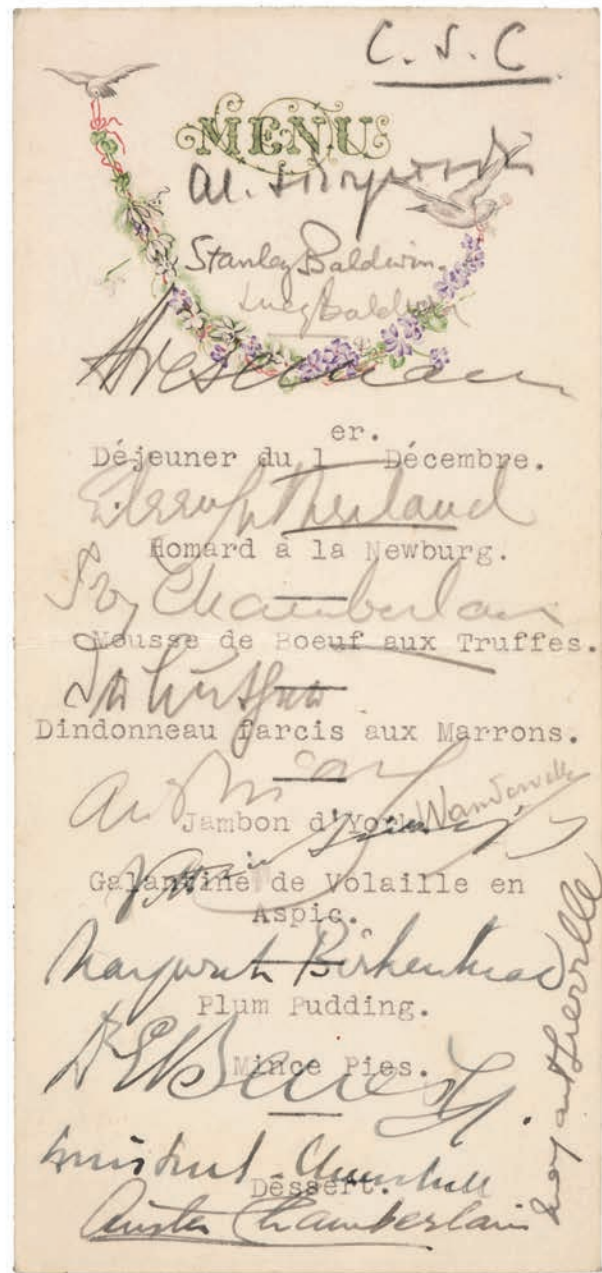 C. S. C
MENU
Stanley Baldwin.
Lucy Baldwin
Stresemann
er.
Déjeuner du 1 Décembre.
Eileen Sutherland
Homard à la Newburg.
Ivy Chamberlain
Mousse de Boeuf aux Truffes.
Dindonneau farcis aux Marrons.
Jambon d'York
Vandervelde
Galantine de Volaille en
Aspic.
Margaret Birkenhead
Plum Pudding.
Dr E Benes
Mince Pies.
Winston Churchill
Dessert.
Austen Chamberlain